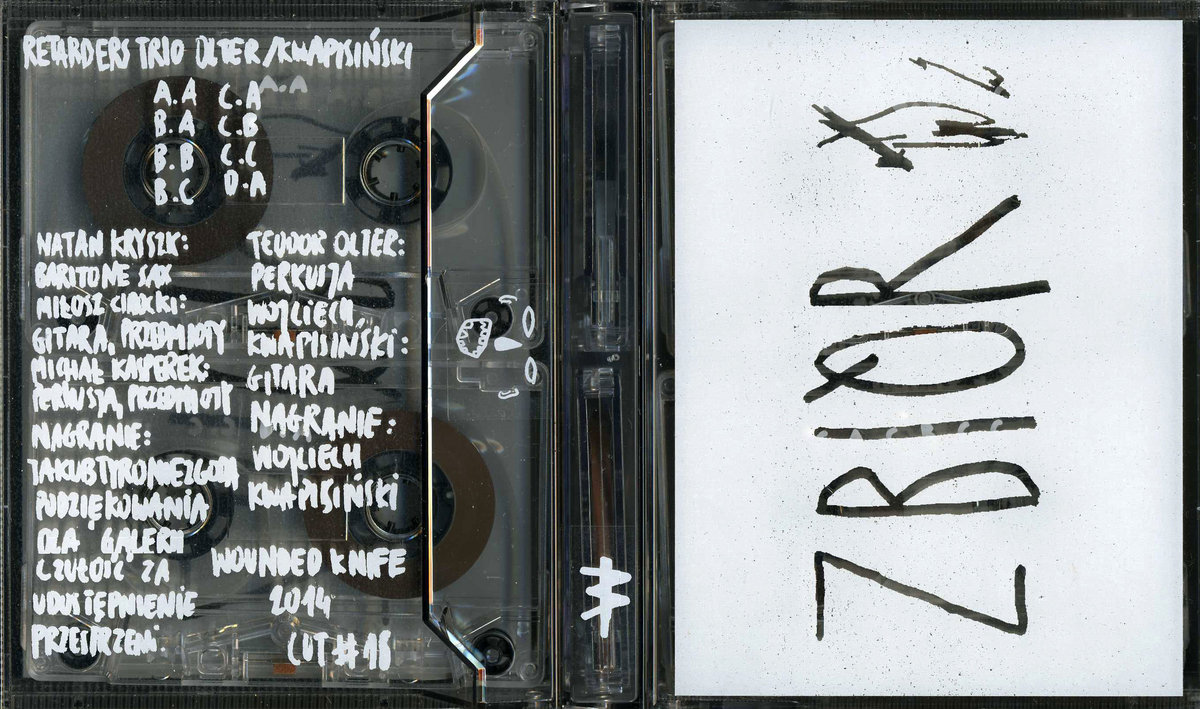 RETARDERS TRIO OLTER/KWAPISIŃSKI
A.A
B.A
B.B
B.C
C.A
C.B
C.C
D.A
NATAN KRYSZK:
BARITONE SAX
MIŁOSZ CIRKI:
GITARA, PRZEDMIOTY
MICHAŁ KASPEREK:
PERKUSJA, PRZEDMIOTY
NAGRANIE:
JAKUB TYRO NIEZGODA
PODZIĘKOWANIA
DLA GALERII
CZUŁOŚĆ ZA
UDOSTĘPNIENIE
PRZESTRZENI:
TEODOR OLTER:
PERKUSJA
WOJCIECH
KWAPISIŃSKI:
GITARA
NAGRANIE:
WOJCIECH
KWAPISIŃSKI
WOUNDED KNIFE
2014
CUT #18
ZBIÓR